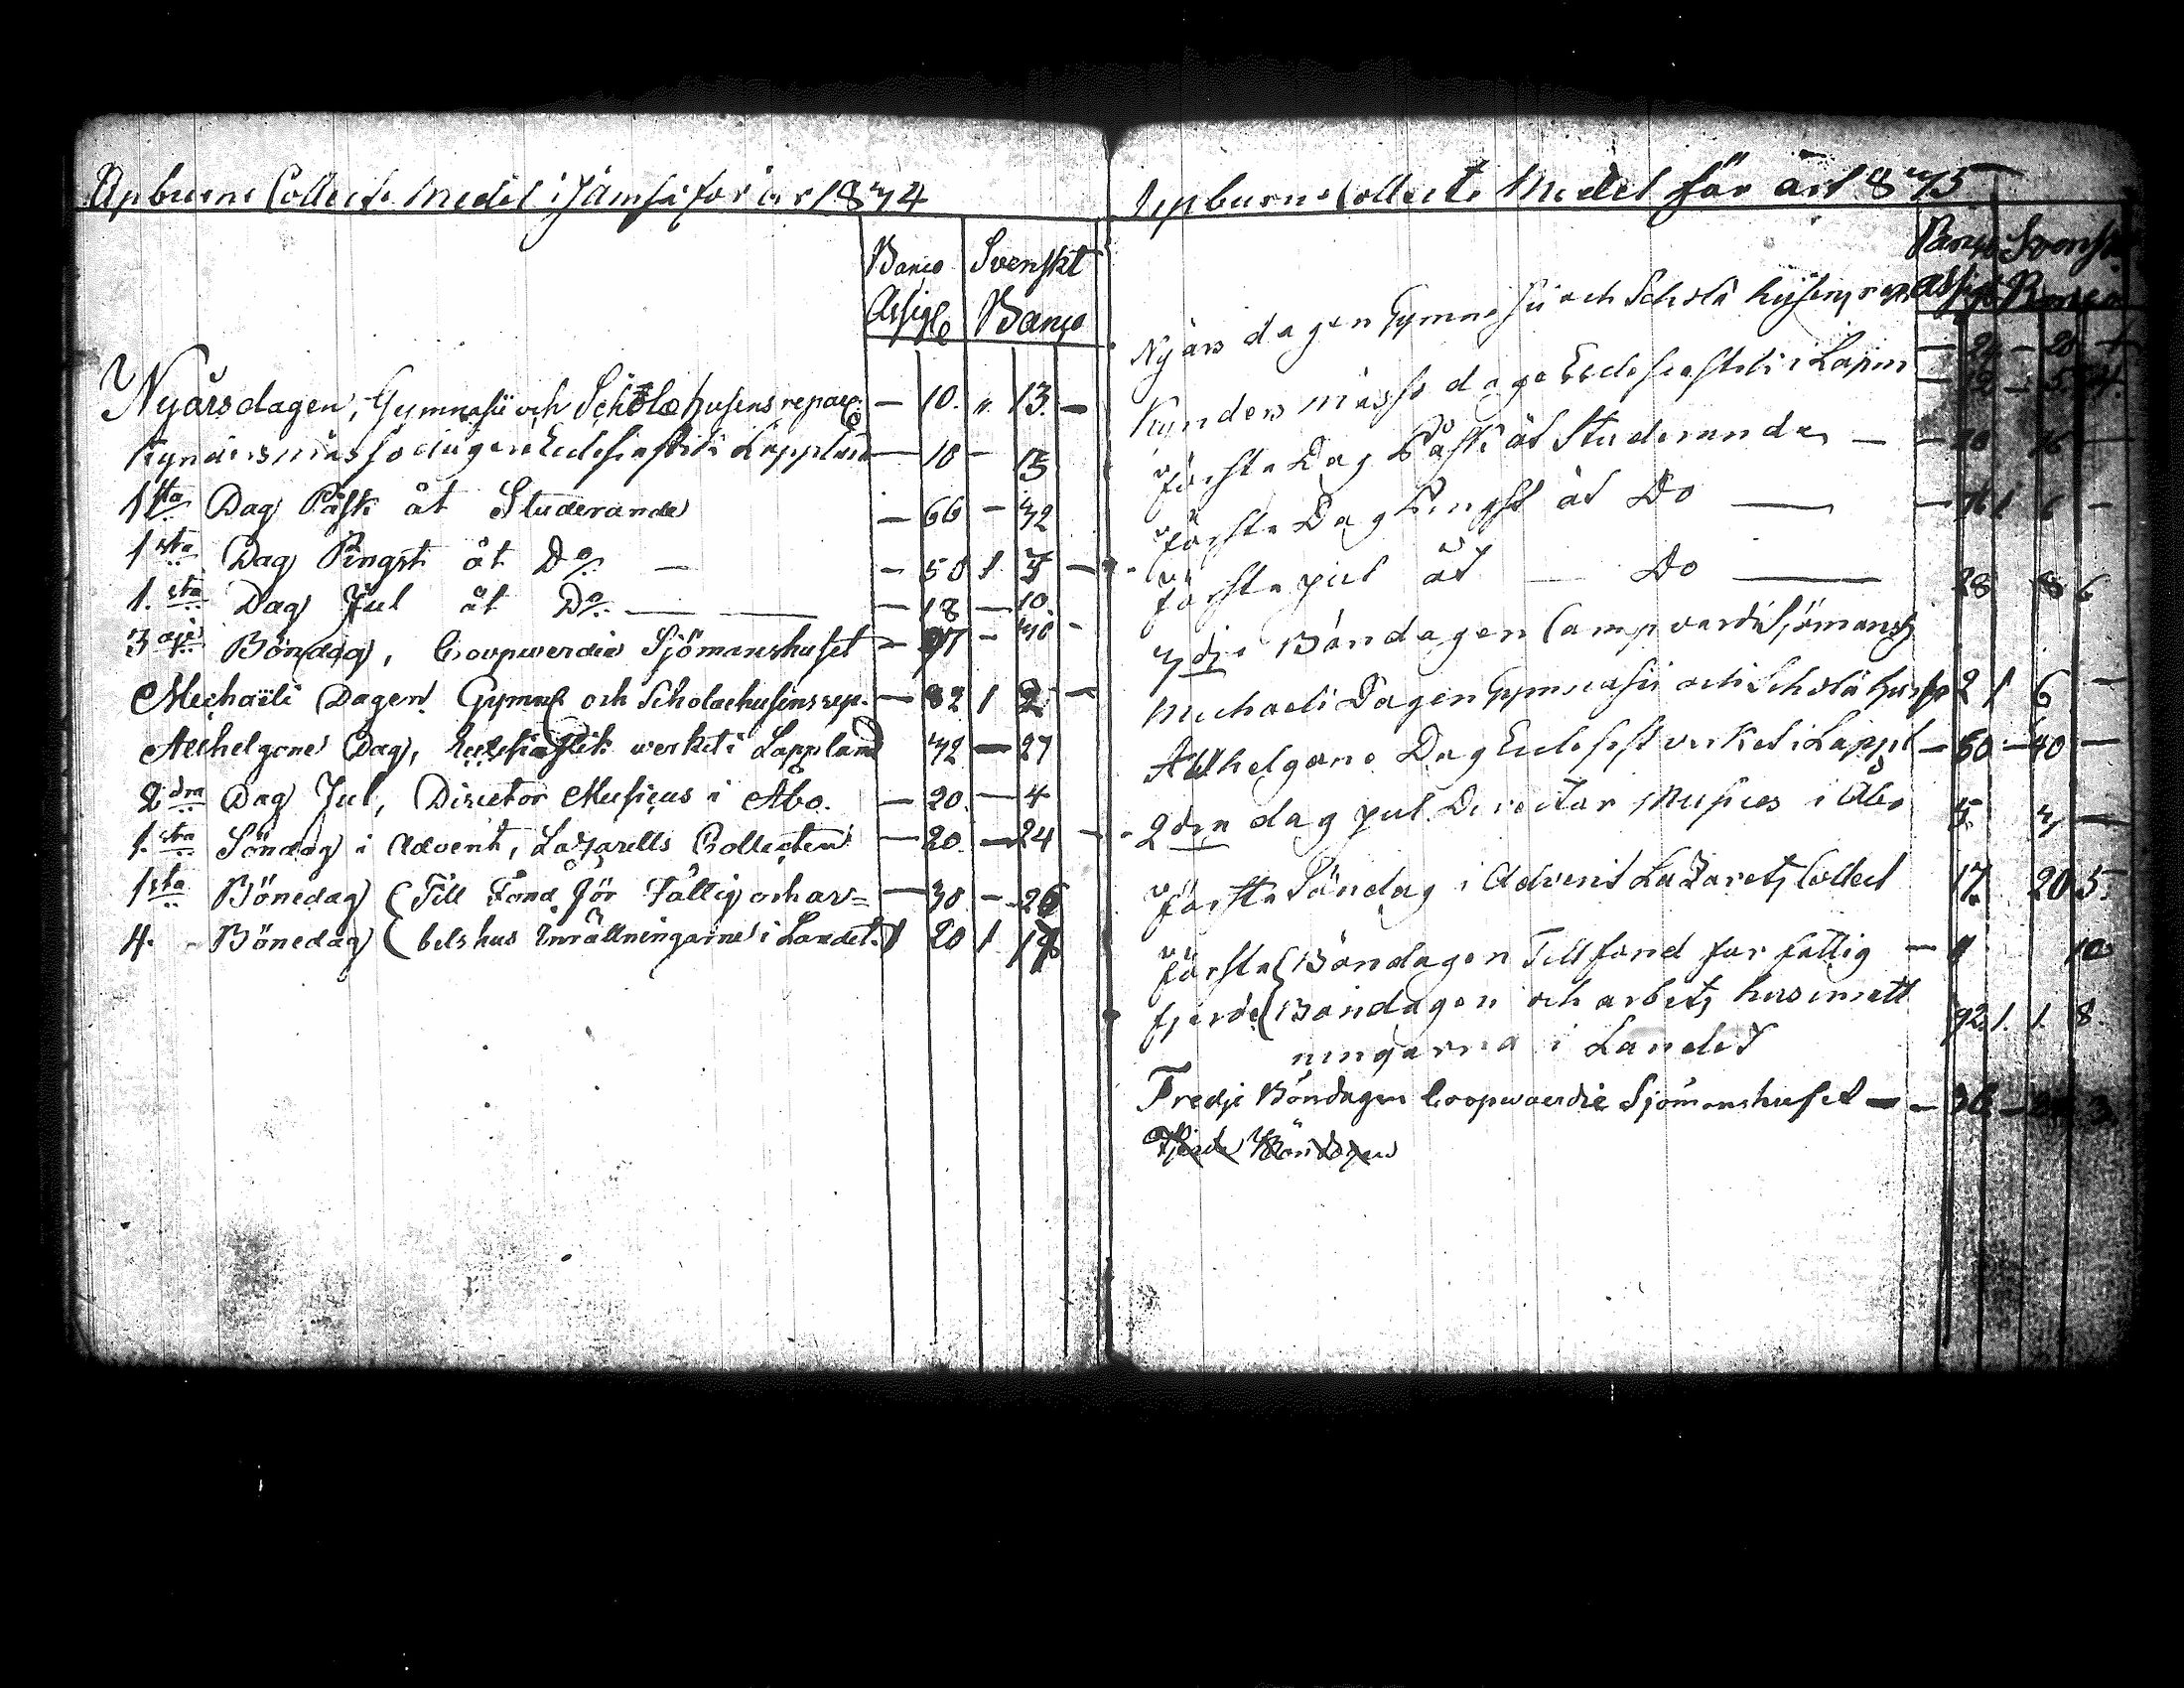 Upburne Collecte Medel i Jämsä för år 1834
Banco Svenskt
Assigl. Banco
Nyårsdagen, Gymnasii och Scholæhusens repar. — 10. " 13. —
Kyndersmässodagen Ecclesiastik i Lappland — 10 — 15
1sta Dag Påsk åt Studerande — 66 — 32
1sta Dag Pingst åt Do. — — 50 1 5 —
1.sta Dag Jul åt Do. — — — 18 — 10.
3dje Böndag, Coopwerdie Sjömanshuset — 97 — 40 -
Michaëli Dagen Gymnas och Scholæhusens rep. — 82 1 2 —
Allhelgone Dag, Ecclesiastik werket i Lappland 32 — 27
2dra Dag Jul, Director Musicus i Åbo. — 20. — 4
1.sta Söndag i Advent, Lazaretts Collecten — 20. — 24 —
1sta Bönedag (Till Fond för Fattig och ar= — 30 — 26
4. - Bönedag (betshus Inrättningarne i Landet. 1 20 1 17
Upburne Collecte Medel för år 1835
Banco Svenskt
Assigl. Banco
Nyårs dagen Gymnasii och Scholæ husens rep. — 24 — 20 +
Kynders mässo dage Ecclesiastik i Lappm — 12 — 5 4.
första Dag Påsk åt Studerande — — 16 —
första Dag Pingst åt Do — — 16 1 6 —
första jul åt — Do — 28 8 6
Böndagen Sjömansh
Michaeli Dagen Gymnasii och Scholæ hus rep 2 1 6 —
Allhelgone Dag Eccles. verket i Lappl — 60 — 40 —
2dra dag jul Director Musicus i Åbo 5. 3 —
första Söndag i Advent Lazarets Collect 17 20 5.
första (Böndagen Till fond för fattig — 10
fjerde (Böndagen och arbets husinrätt 92. 1. 1. 8.
ningarna i Landet
Tredje Böndagen Coopwaerdie Sjömanshuset — — 36 —
Fjerde Böndagen